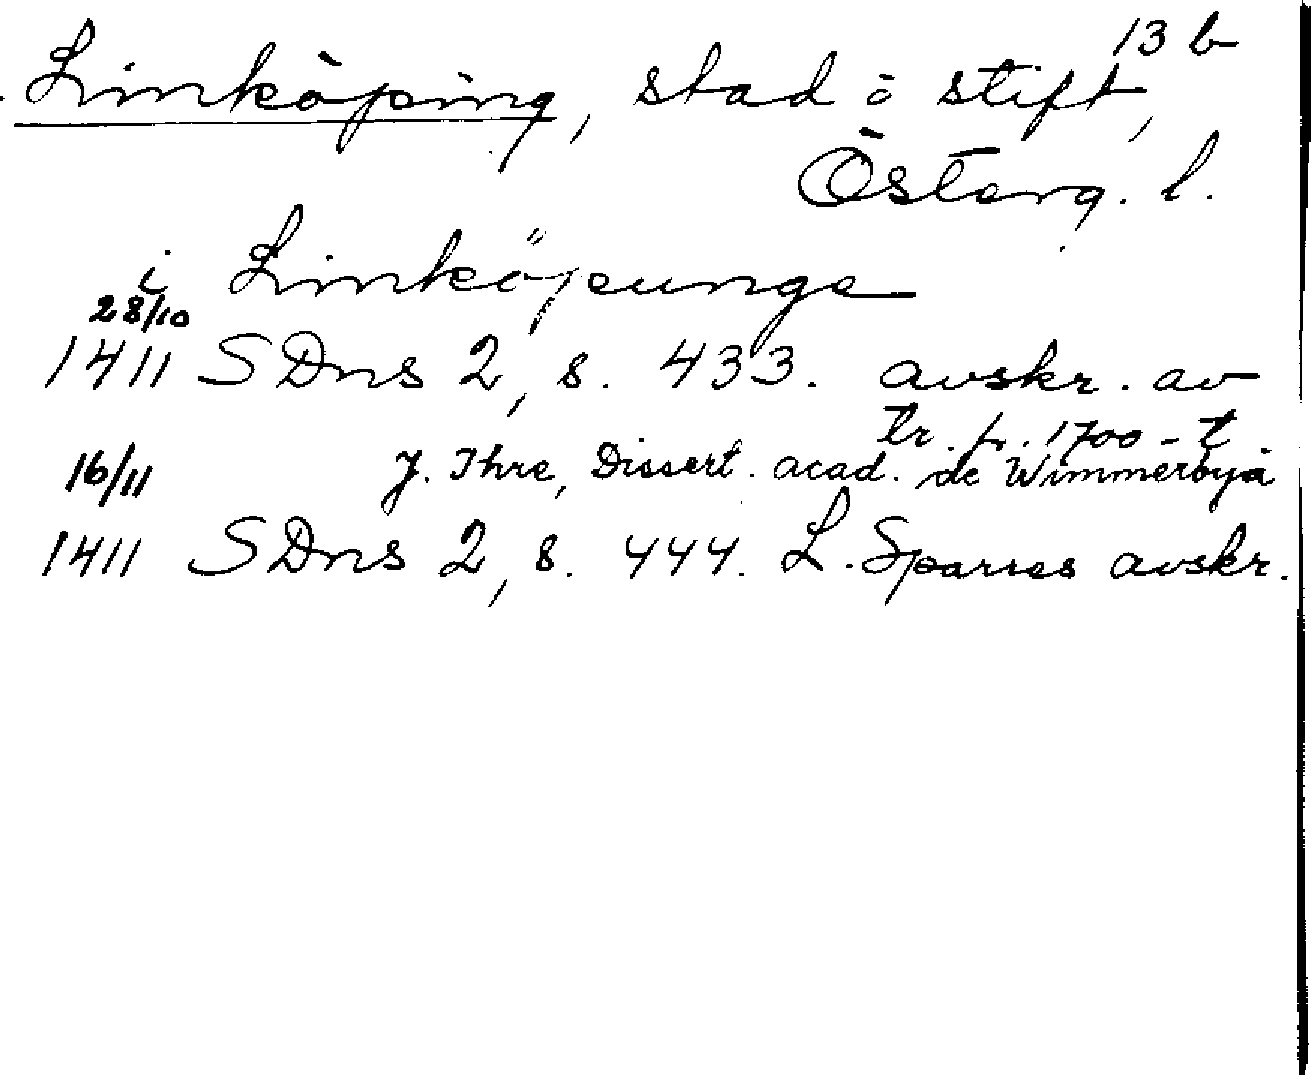 13 b
Linköping, stad o stift,
Österg. l.
i Linköpunge
28/10
1411 SDns 2, s. 433. avskr. av
tr. fr. 1700-t.
16/11 J. Ihre, Dissert. acad. de Wimmerbyja
1411 SDns 2, s. 444. L. Sparres avskr.